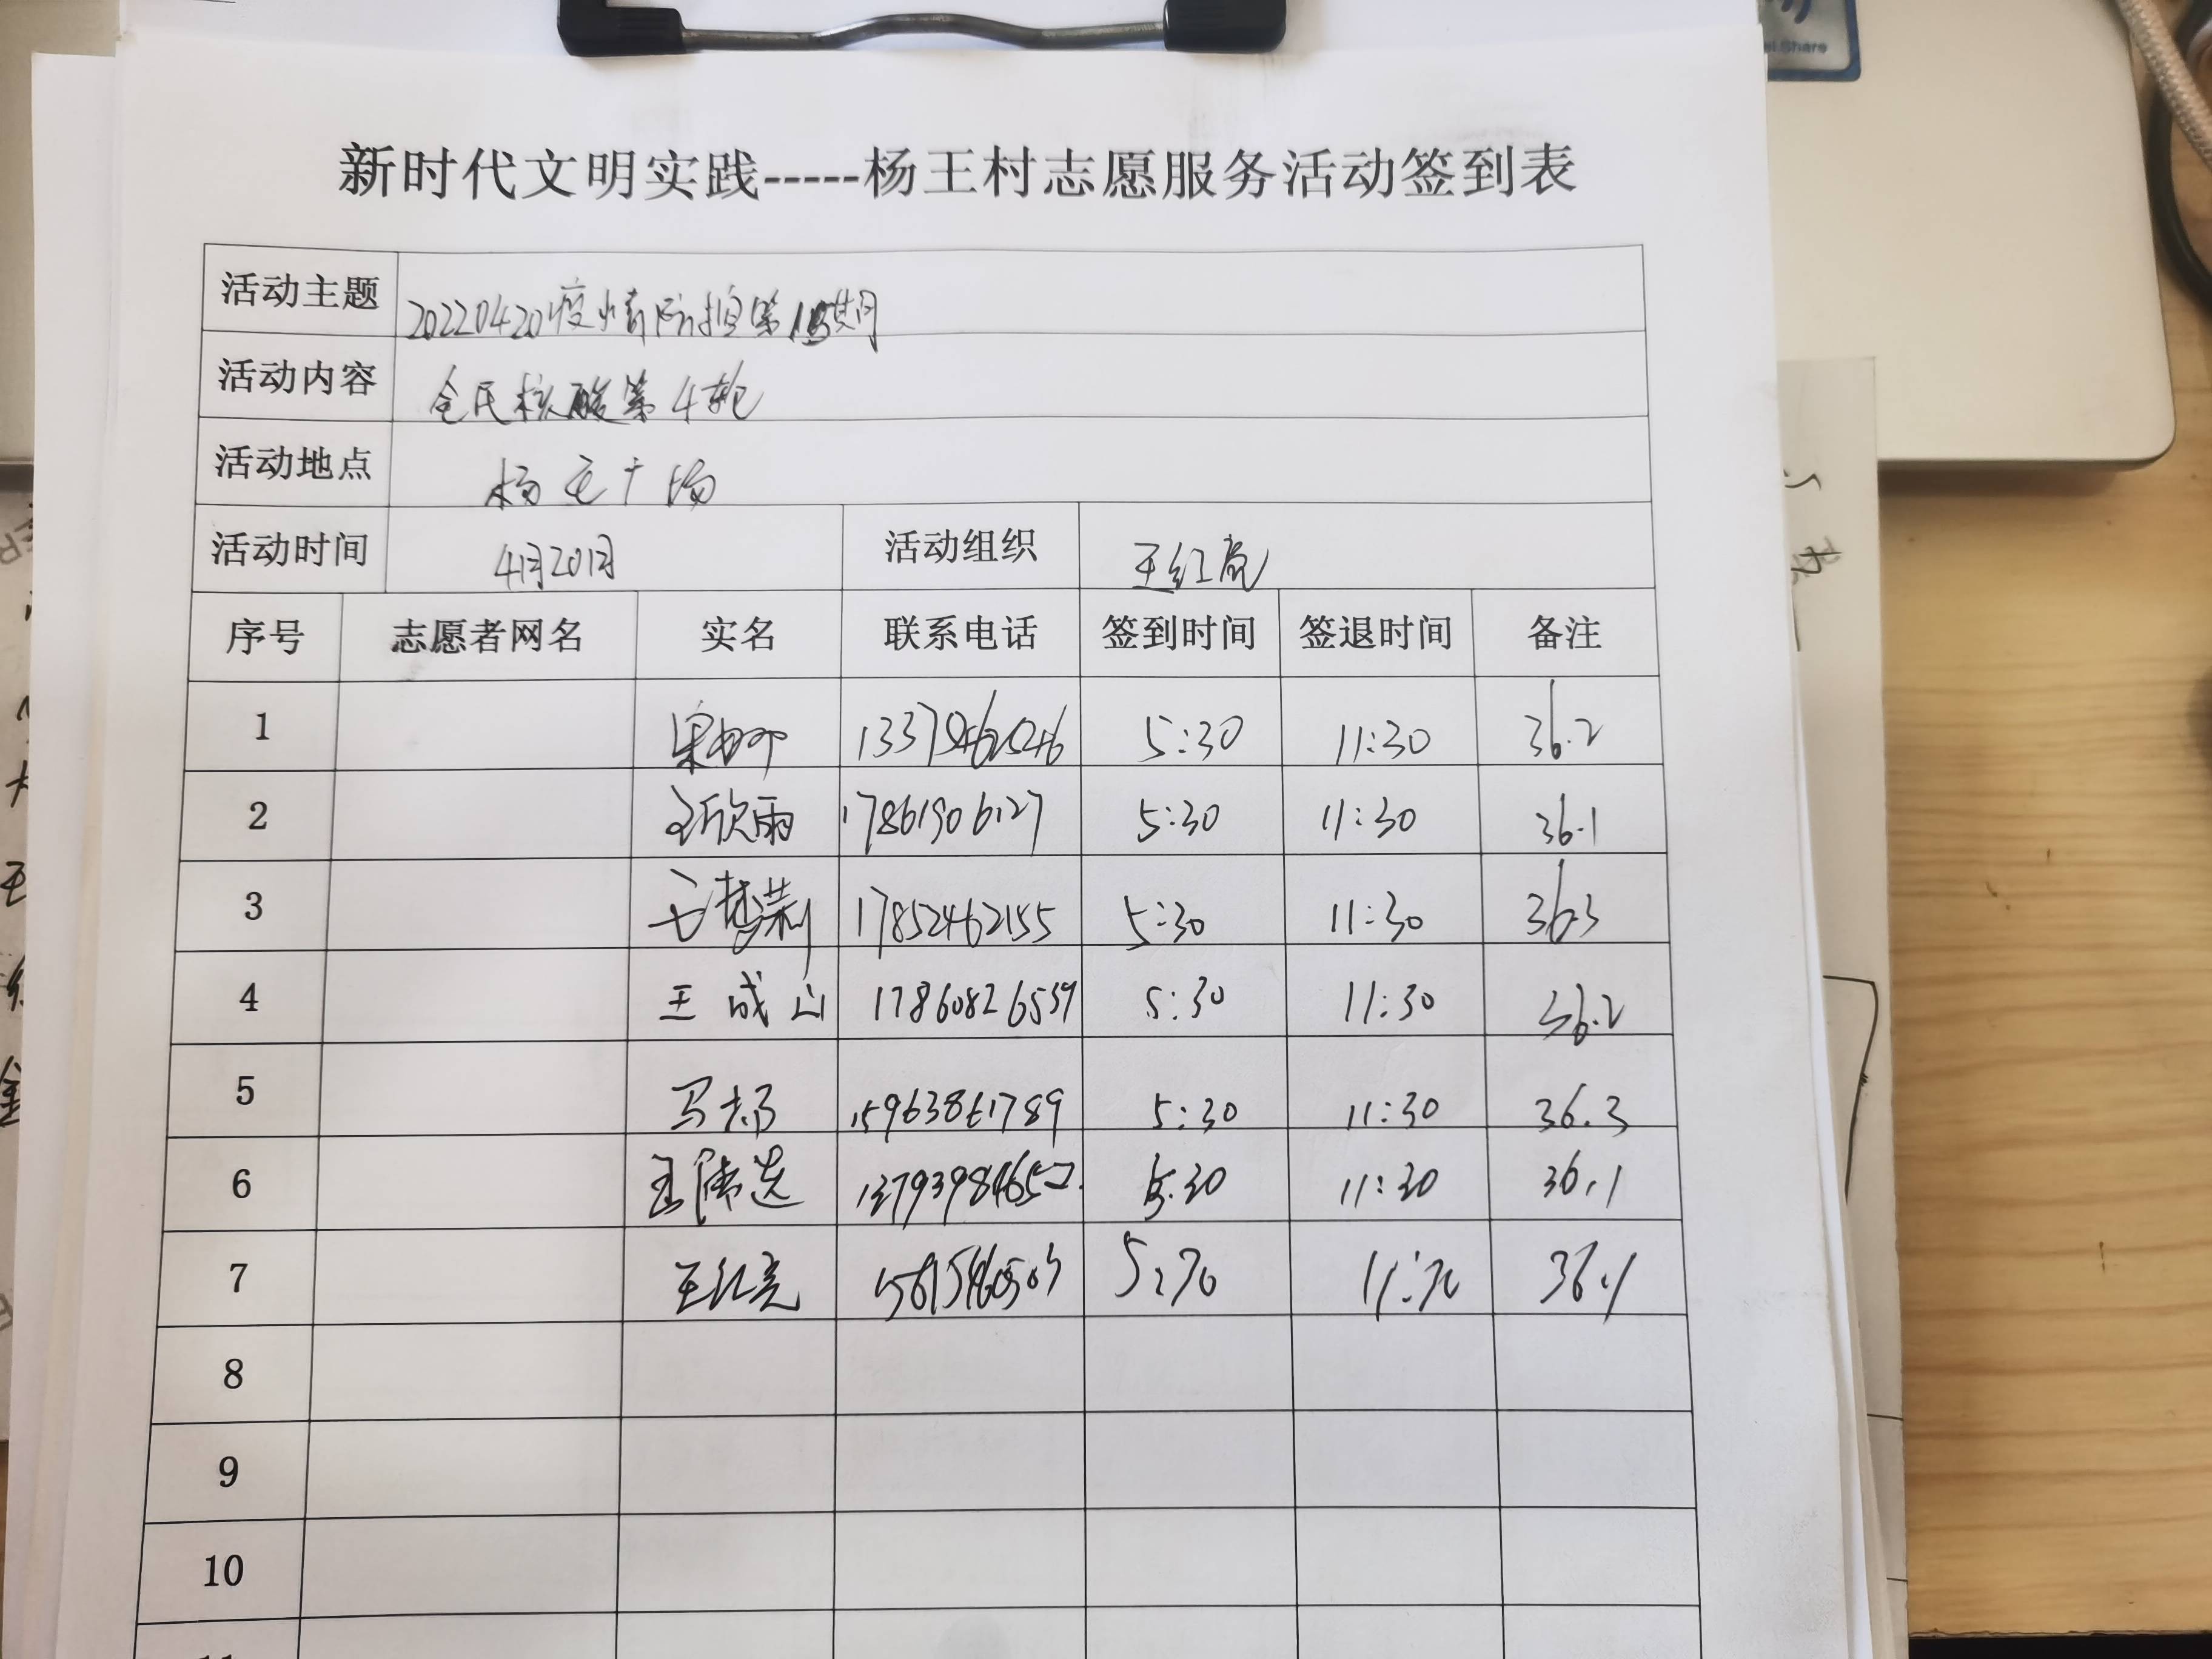 新时代文明实践-----杨王村志愿服务活动签到表
活动主题 20220420疫情防控第 期
活动内容 全民核酸第4轮
活动地点 杨王广场
活动时间 4月20日 活动组织 王红亮
序号 志愿者网名 实名 联系电话 签到时间 签退时间 备注
1 5:30 11:30 36.2
2 王欣雨 17861906127 5:30 11:30 36.1
3 17852462155 5:30 11:30 36.3
4 王成山 17860826539 5:30 11:30 36.2
5 15963861789 5:30 11:30 36.3
6 5:30 11:30 36.1
7 王红亮 5:30 11:30 36.1
8
9
10